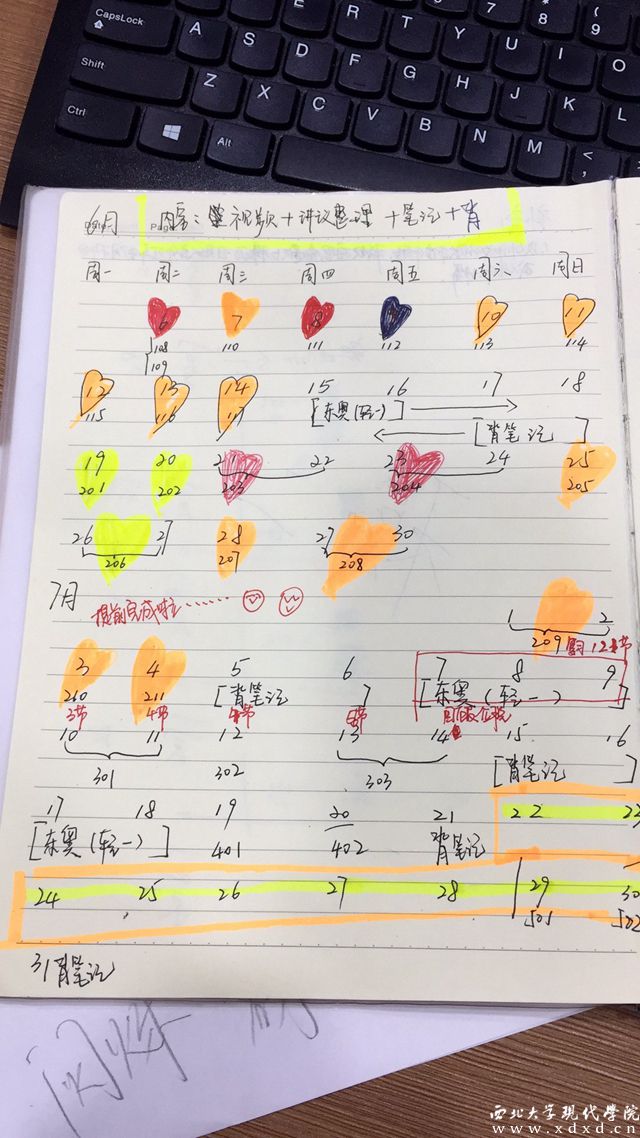 CapsLock
A
S
D
F
G
H
J
K
L
Shift
Z
X
C
V
B
N
M
Ctrl
Alt
T
Y
U
I
O
7
&
8
*
9
(
6月 内容：视频+讲议整理+笔记+背
周一 周二 周三 周四 周五 周六 周日
6 7 8 10 11
108 110 111 112 113 114
109
12 13 14 15 16 17 18
115 116 117 [东奥(轻一)]
[背笔记]
19 20 21 22 23 24 25
201 202 203 204 205
26 27 28 27 30
206 207 208
7月 提前完成啦……
1 2
209 12节
3 4 5 6 7 8 9
210 211 [背笔记] [东奥(轻一)]
3节 4节 节 节
10 11 12 13 14 15 16
301 302 303 [背笔记]
17 18 19 20 21 22 23
[东奥(轻一)] 401 402 背笔记
24 25 26 27 28 29 30
501 502
31背笔记
西北大学现代学院
www.xdxd.cn